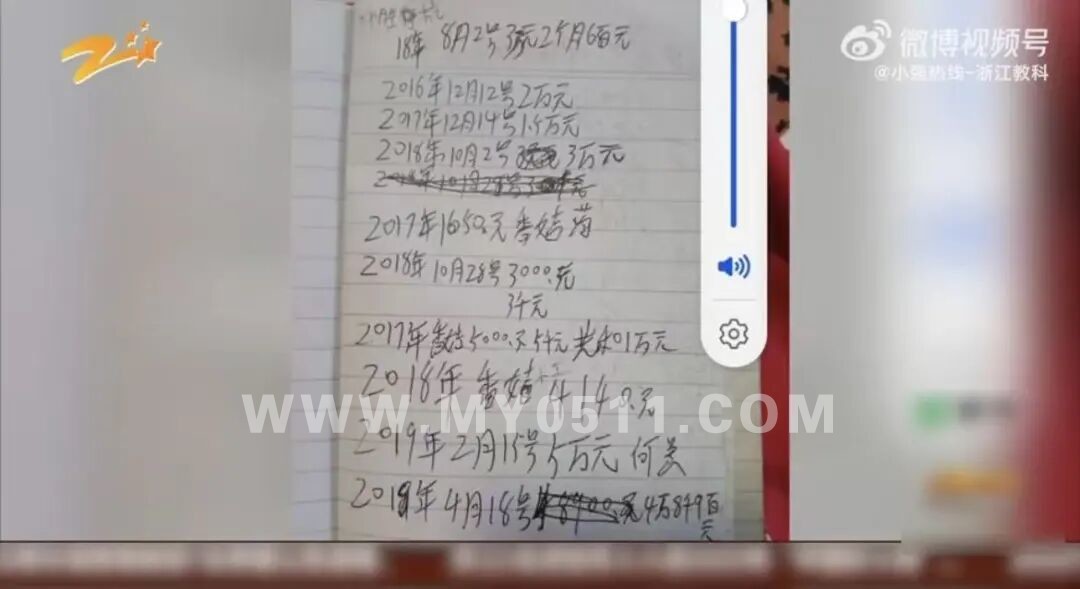 微博视频号
@小强热线-浙江教科
18年 8月2号 2个月6百元
2016年12月12号2万元
2017年12月14号1.5万元
2018年10月2号 3万元
2017年1650元
2018年10月28号3000.元
3千元
2017年 5000.元5千元 1万元
2018年 4140.元
WWW.MY0511.COM
2019年2月15号5万元 何美
2019年4月18号 4万8千9百
元